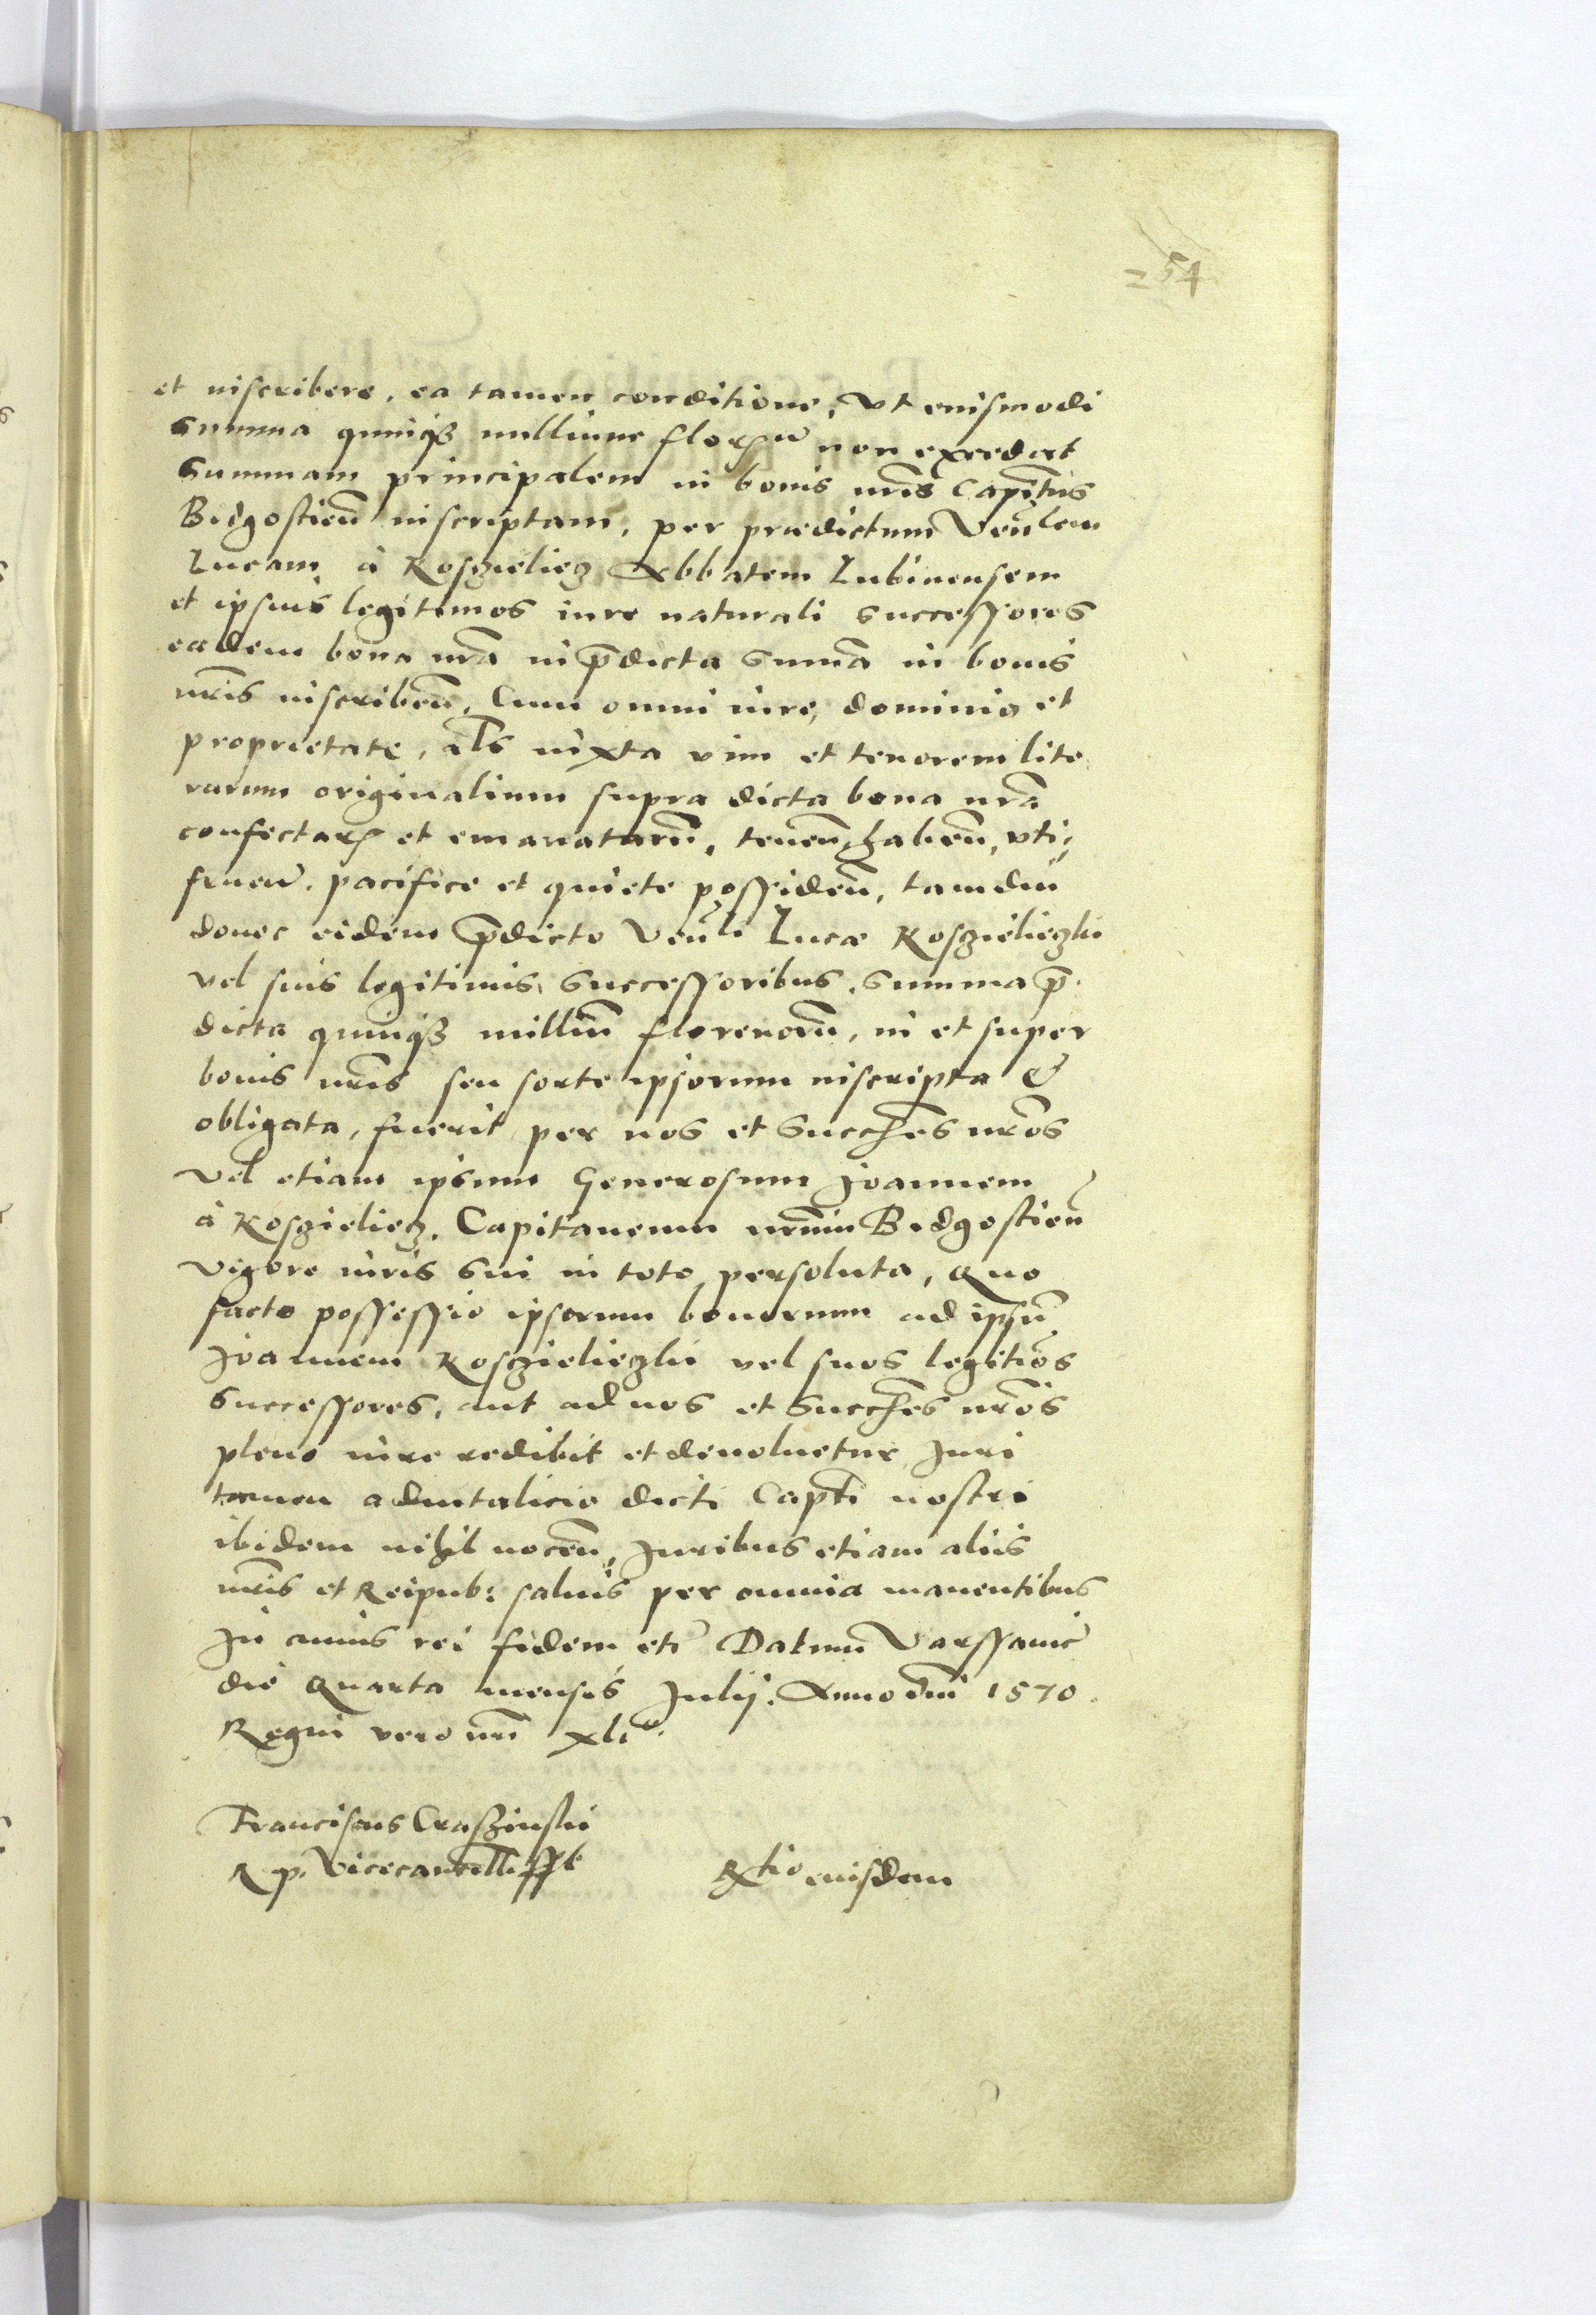 254
et inscribere, ea tamen conditione, vt euismodi
summa quinq₃ millium florꝝ non excedat
summam principalem in bonis nr̃is Capit̃tus
Bidgostien̄ inscriptam, per prædictum Ven̄lem
Lucam à Kosczieliecz Abbatem Lubinensem
et ipsius legitimos iure naturali successores
eadem bona nr̃a in p̄dicta sum̄a in bonis
nr̃is inscriben̄, Cum omni iure, dominio et
proprietate, al̃s iuxta vim et tenorem lite
rarum originalium supra dicta bona nr̃a
confectarꝝ et emanatarū, tenen̄ haben̄, vti,
fruen̄. pacifice et quiete possiden̄, tamdiu
donec eidem p̄dicto Ven̄li Lucæ Kosczielieczki
vel suis legitimis successoribus, summa p̄
dicta quinq₃ milliū florenorū, in et super
bonis nr̃is seu sorte ipsorum inscripta &
obligata, fuerit per nos et Succ̃es nr̃os
Vel etiam ipsum Generosum Joannem
à Kosczieliecz, Capitaneum nr̃um Bidgostien̄
vigore iuris sui in toto persoluta, Quo
facto possessio ipsorum bonorum ad ipsū
Joannem Kosczielieczki vel suos legitĩos
successores, aut ad nos et Succ̃es nr̃os
pleno iure redibit et deuoluetur, Juri
tamen aduitalicio dicti Capt̃i nostri
ibidem nihil nocen̄, Juribus etiam aliis
nr̃is et Reipub: saluis per omnia manentibus
In cuius rei fidem etc̃ Datum Varssauiæ
die Quarta mensis Julij. Anno dn̄i 1570.
Regni vero nr̃i xli°.
Franciscus Craszinski
R. p. Vicecancell: sst
R̃tio eiusdem